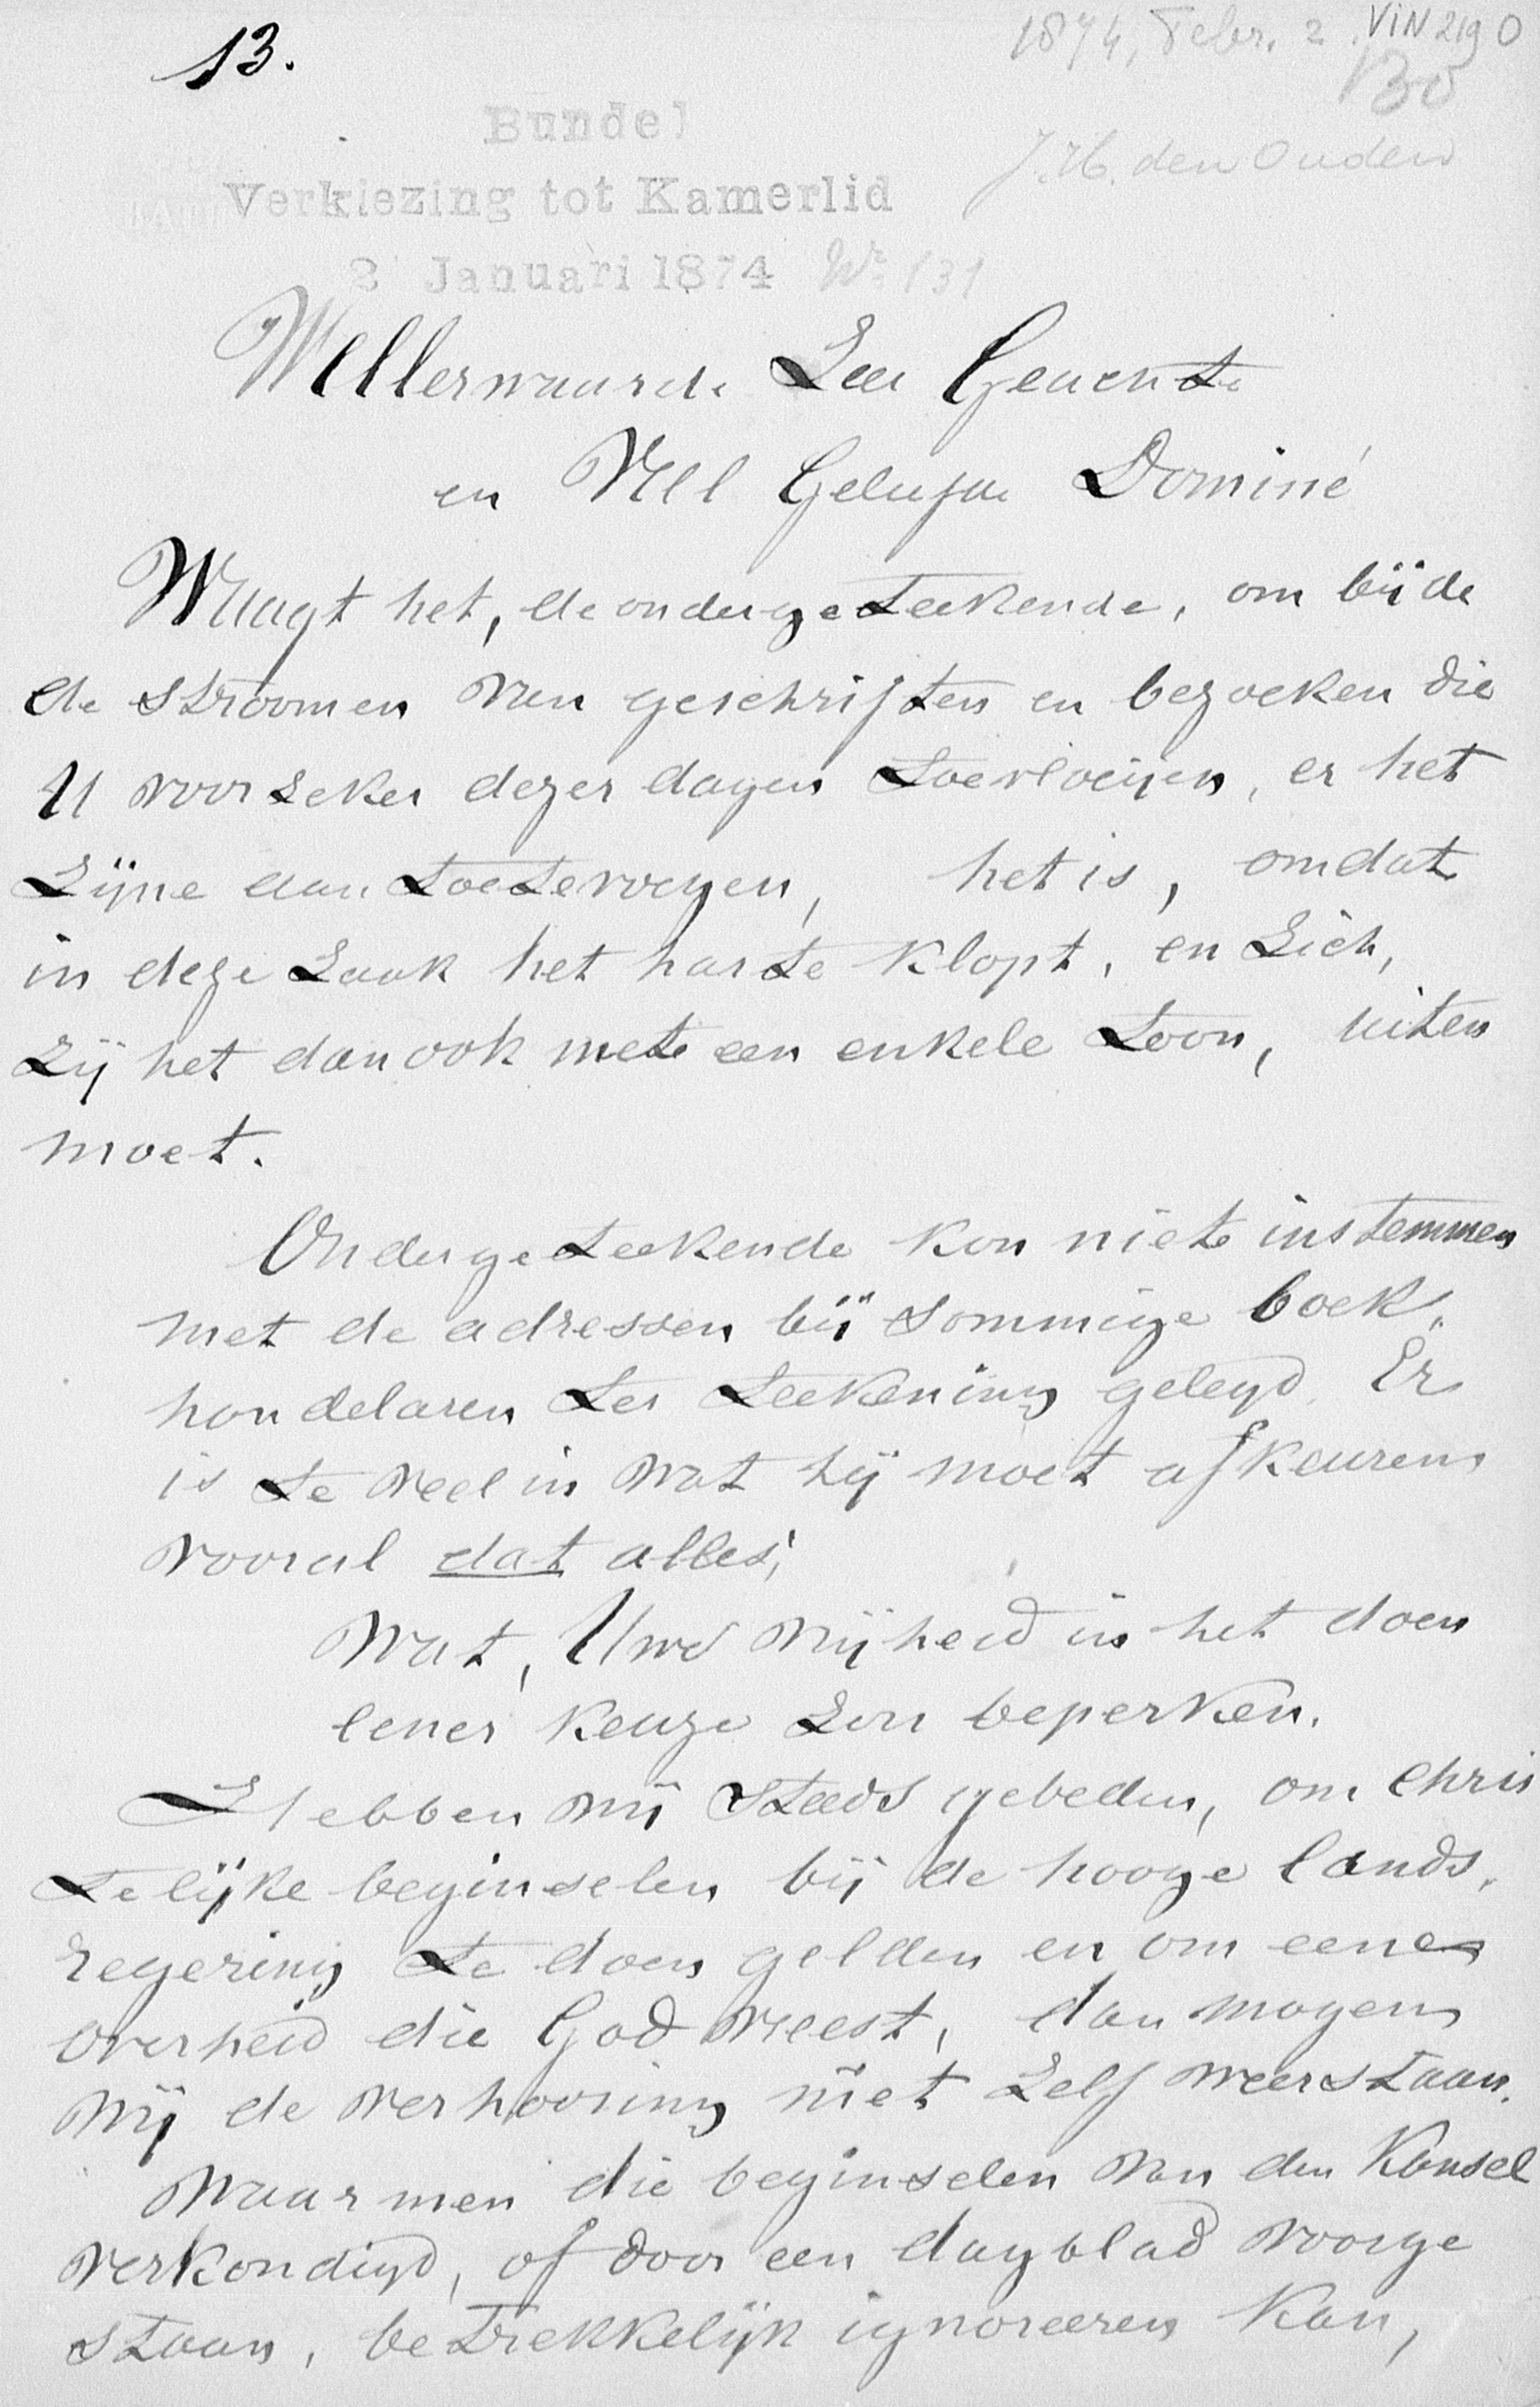 13.
1874, Febr. 2 VIN 219 O
130
Bundel
J.H. den Ouden
Verkiezing tot Kamerlid
2 Januari 1874 Nº 131
WelEerwaarde Zeer Geleerde
en Wel Gelukzal Dominé
Waagt het, de ondergeteekende, om bij de
de stroomen van geschriften en bezoeken die
U voorzeker dezer dagen toevloeijen, er het
Zijne aan toetevoegen, het is, omdat
in deze zaak het harte klopt, en zich,
zij het dan ook met een enkele toon, uiten
moet.
Ondergeteekende kon niet instemmen
met de adressen bij sommige boek„
handelaren ter teekening gelegd. Er
is te veel in wat hij moet afkeuren
vooral dat alles,
wat, Uwe vrijheid in het doen
eener keuze zou beperken.
Hebben wij steeds gebeden, om Chris
telijke beginselen bij de hooge lands,
regering te doen gelden en om eene
overheid die God vreest, dan mogen
wij de verhooring niet zelf weerstaan.
Waar men die beginselen van den Kansel
verkondigd, of door een dagblad voorge
staan, betrekkelijk ignoreeren kan,